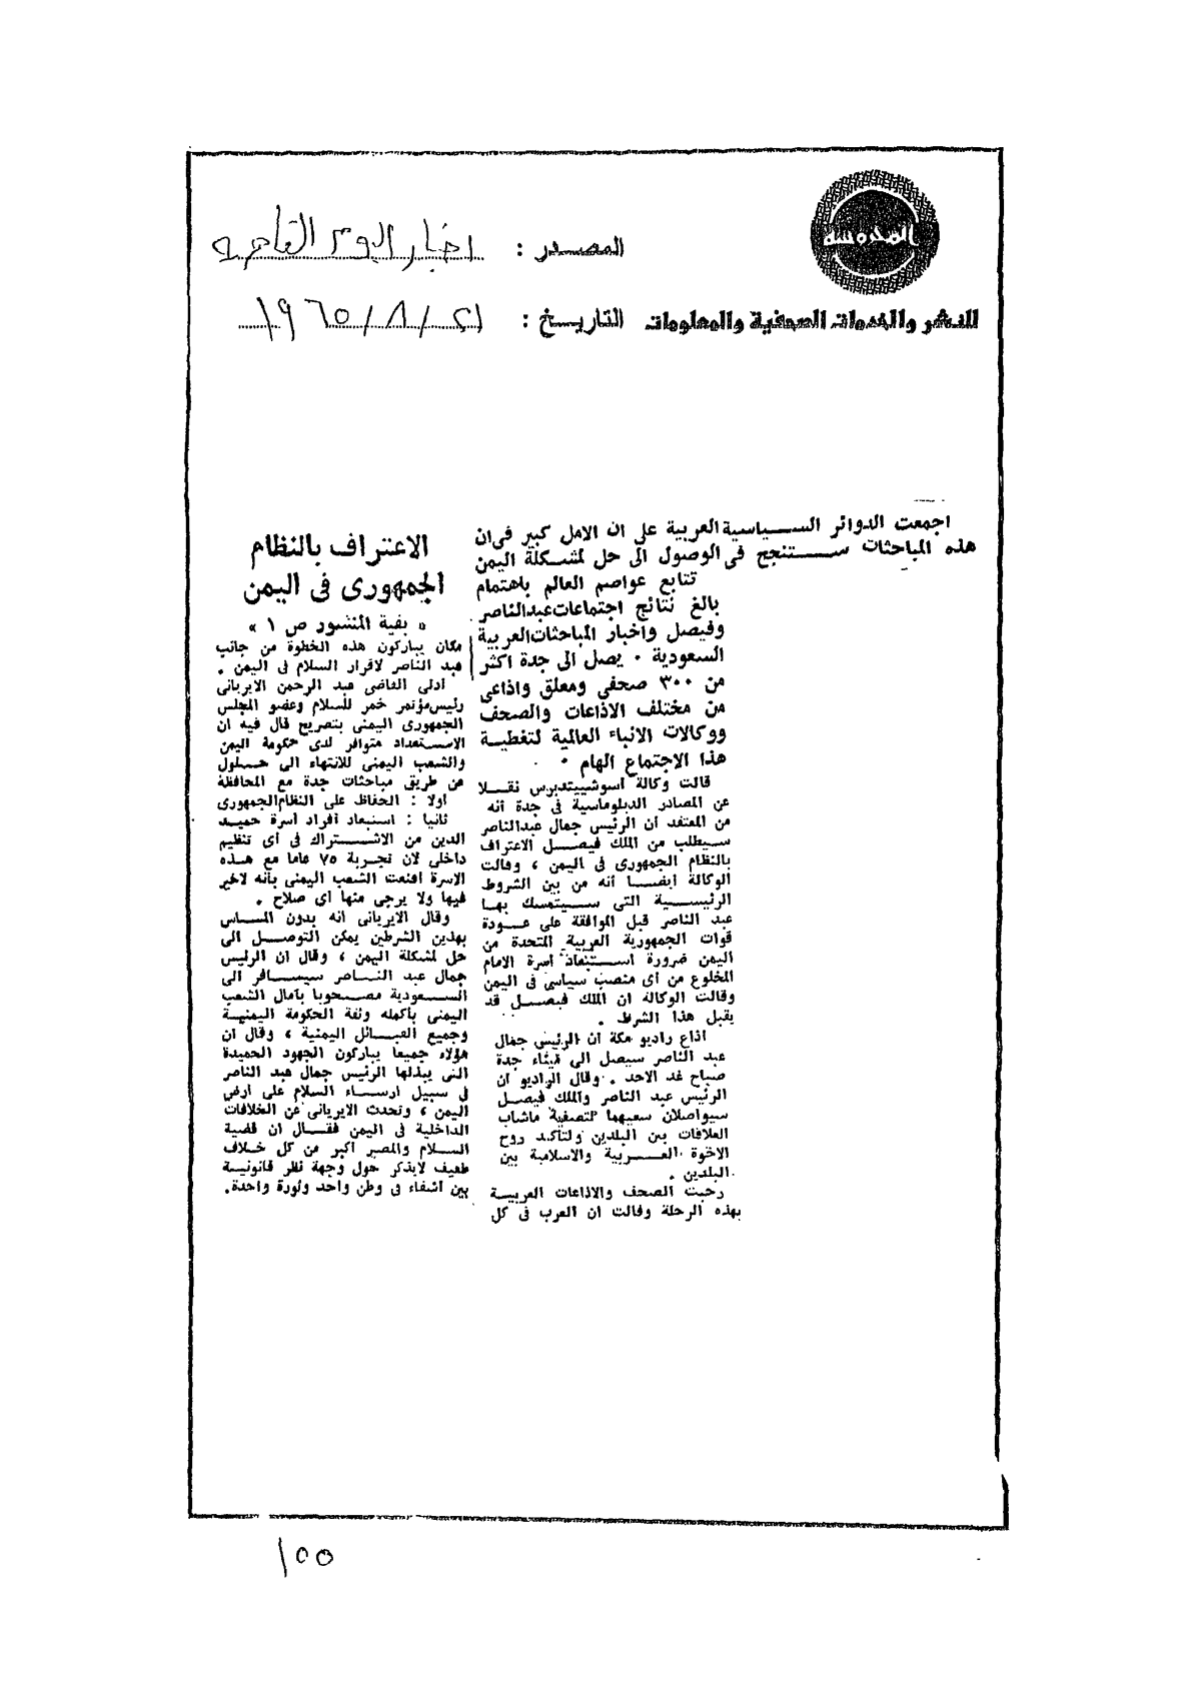 المصدر : اخبار اليوم القاهرية
للنشر والخدمات الصحفية والمعلومات
التاريخ : ٢١ / ٨ / ١٩٦٥
اجمعت الدوائر السياسية العربية على ان الامل كبير فى ان
هذه المباحثات ستنجح فى الوصول الى حل لمشكلة اليمن
تتابع عواصم العالم باهتمام
بالغ نتائج اجتماعات عبدالناصر
وفيصل واخبار المباحثات العربية
السعودية . يصل الى جدة اكثر
من ٣٠٠ صحفى ومعلق واذاعى
من مختلف الاذاعات والصحف
ووكالات الانباء العالمية لتغطية
هذا الاجتماع الهام .
قالت وكالة اسوشييتدبرس نقلا
عن المصادر الدبلوماسية فى جدة أنه
من المعتقد أن الرئيس جمال عبدالناصر
سيطلب من الملك فيصل الاعتراف
بالنظام الجمهورى فى اليمن ، وقالت
الوكالة ايضا أنه من بين الشروط
الرئيسية التى سيتمسك بها
عبد الناصر قبل الموافقة على عودة
قوات الجمهورية العربية المتحدة من
اليمن ضرورة استبعاد أسرة الامام
المخلوع من أى منصب سياسى فى اليمن
وقالت الوكالة ان الملك فيصل قد
يقبل هذا الشرط .
اذاع راديو مكة أن الرئيس جمال
عبد الناصر سيصل الى ميناء جدة
صباح غد الاحد . وقال الراديو ان
الرئيس عبد الناصر والملك فيصل
سيواصلان سعيهما لتصفية ماشاب
العلاقات بين البلدين ولتأكيد روح
الاخوة العربية والاسلامية بين
البلدين .
رحبت الصحف والاذاعات العربية
بهذه الرحلة وقالت ان العرب فى كل
الاعتراف بالنظام
الجمهورى فى اليمن
« بقية المنشور ص ١ »
مكان يباركون هذه الخطوة من جانب
عبد الناصر لاقرار السلام فى اليمن .
أدلى القاضى عبد الرحمن الايريانى
رئيس مؤتمر خمر للسلام وعضو المجلس
الجمهورى اليمنى بتصريح قال فيه ان
الاستعداد متوافر لدى حكومة اليمن
والشعب اليمنى للانتهاء الى حلول
عن طريق مباحثات جدة مع المحافظة
أولا : الحفاظ على النظام الجمهورى
ثانيا : استبعاد أفراد اسرة حميد
الدين من الاشتراك فى أى تنظيم
داخلى لان تجربة ٧٥ عاما مع هذه
الاسرة اقنعت الشعب اليمنى بأنه لاخير
فيها ولا يرجى منها أى صلاح .
وقال الايريانى انه بدون المساس
بهذين الشرطين يمكن التوصل الى
حل لمشكلة اليمن ، وقال ان الرئيس
جمال عبد الناصر سيسافر الى
السعودية مصحوبا بآمال الشعب
اليمنى بأكمله وثقة الحكومة اليمنية
وجميع القبائل اليمنية ، وقال ان
هؤلاء جميعا يباركون الجهود الحميدة
التى يبذلها الرئيس جمال عبد الناصر
فى سبيل ارساء السلام على أرض
اليمن ، وتحدث الايريانى عن الخلافات
الداخلية فى اليمن فقال ان قضية
السلام والمصير أكبر من كل خلاف
طفيف لايذكر حول وجهة نظر قانونية
بين أشقاء فى وطن واحد وثورة واحدة.
١٥٥